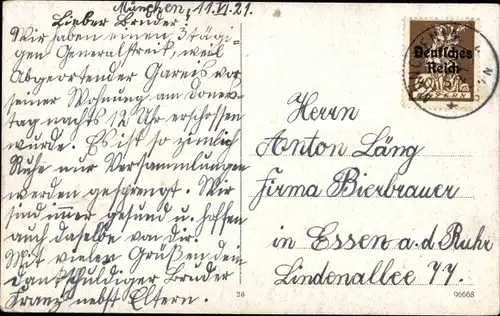 München, 11.VI.21.
Lieber Bruder!
Wir haben einen 3tägi-
gen Generalstreik, weil
Abgeortender Gareis vor
seiner Wohnung am Doners-
tag nachts 12 Uhr erschossen
wurde. Es ist so zimlich
Ruhe nur Versammlungen
werden gesprengt. Wir
sind imer gesund u. hoffen
auch daselbe von dir.
Mit vielen Grüßen dein
dankschuldiger Bruder
Franz nebst Eltern.
Deutsches
Reich
Herrn
Anton Läng
Firma Bierbrauer
in Essen a.d Ruhr
Lindenallee 77.
26
96668